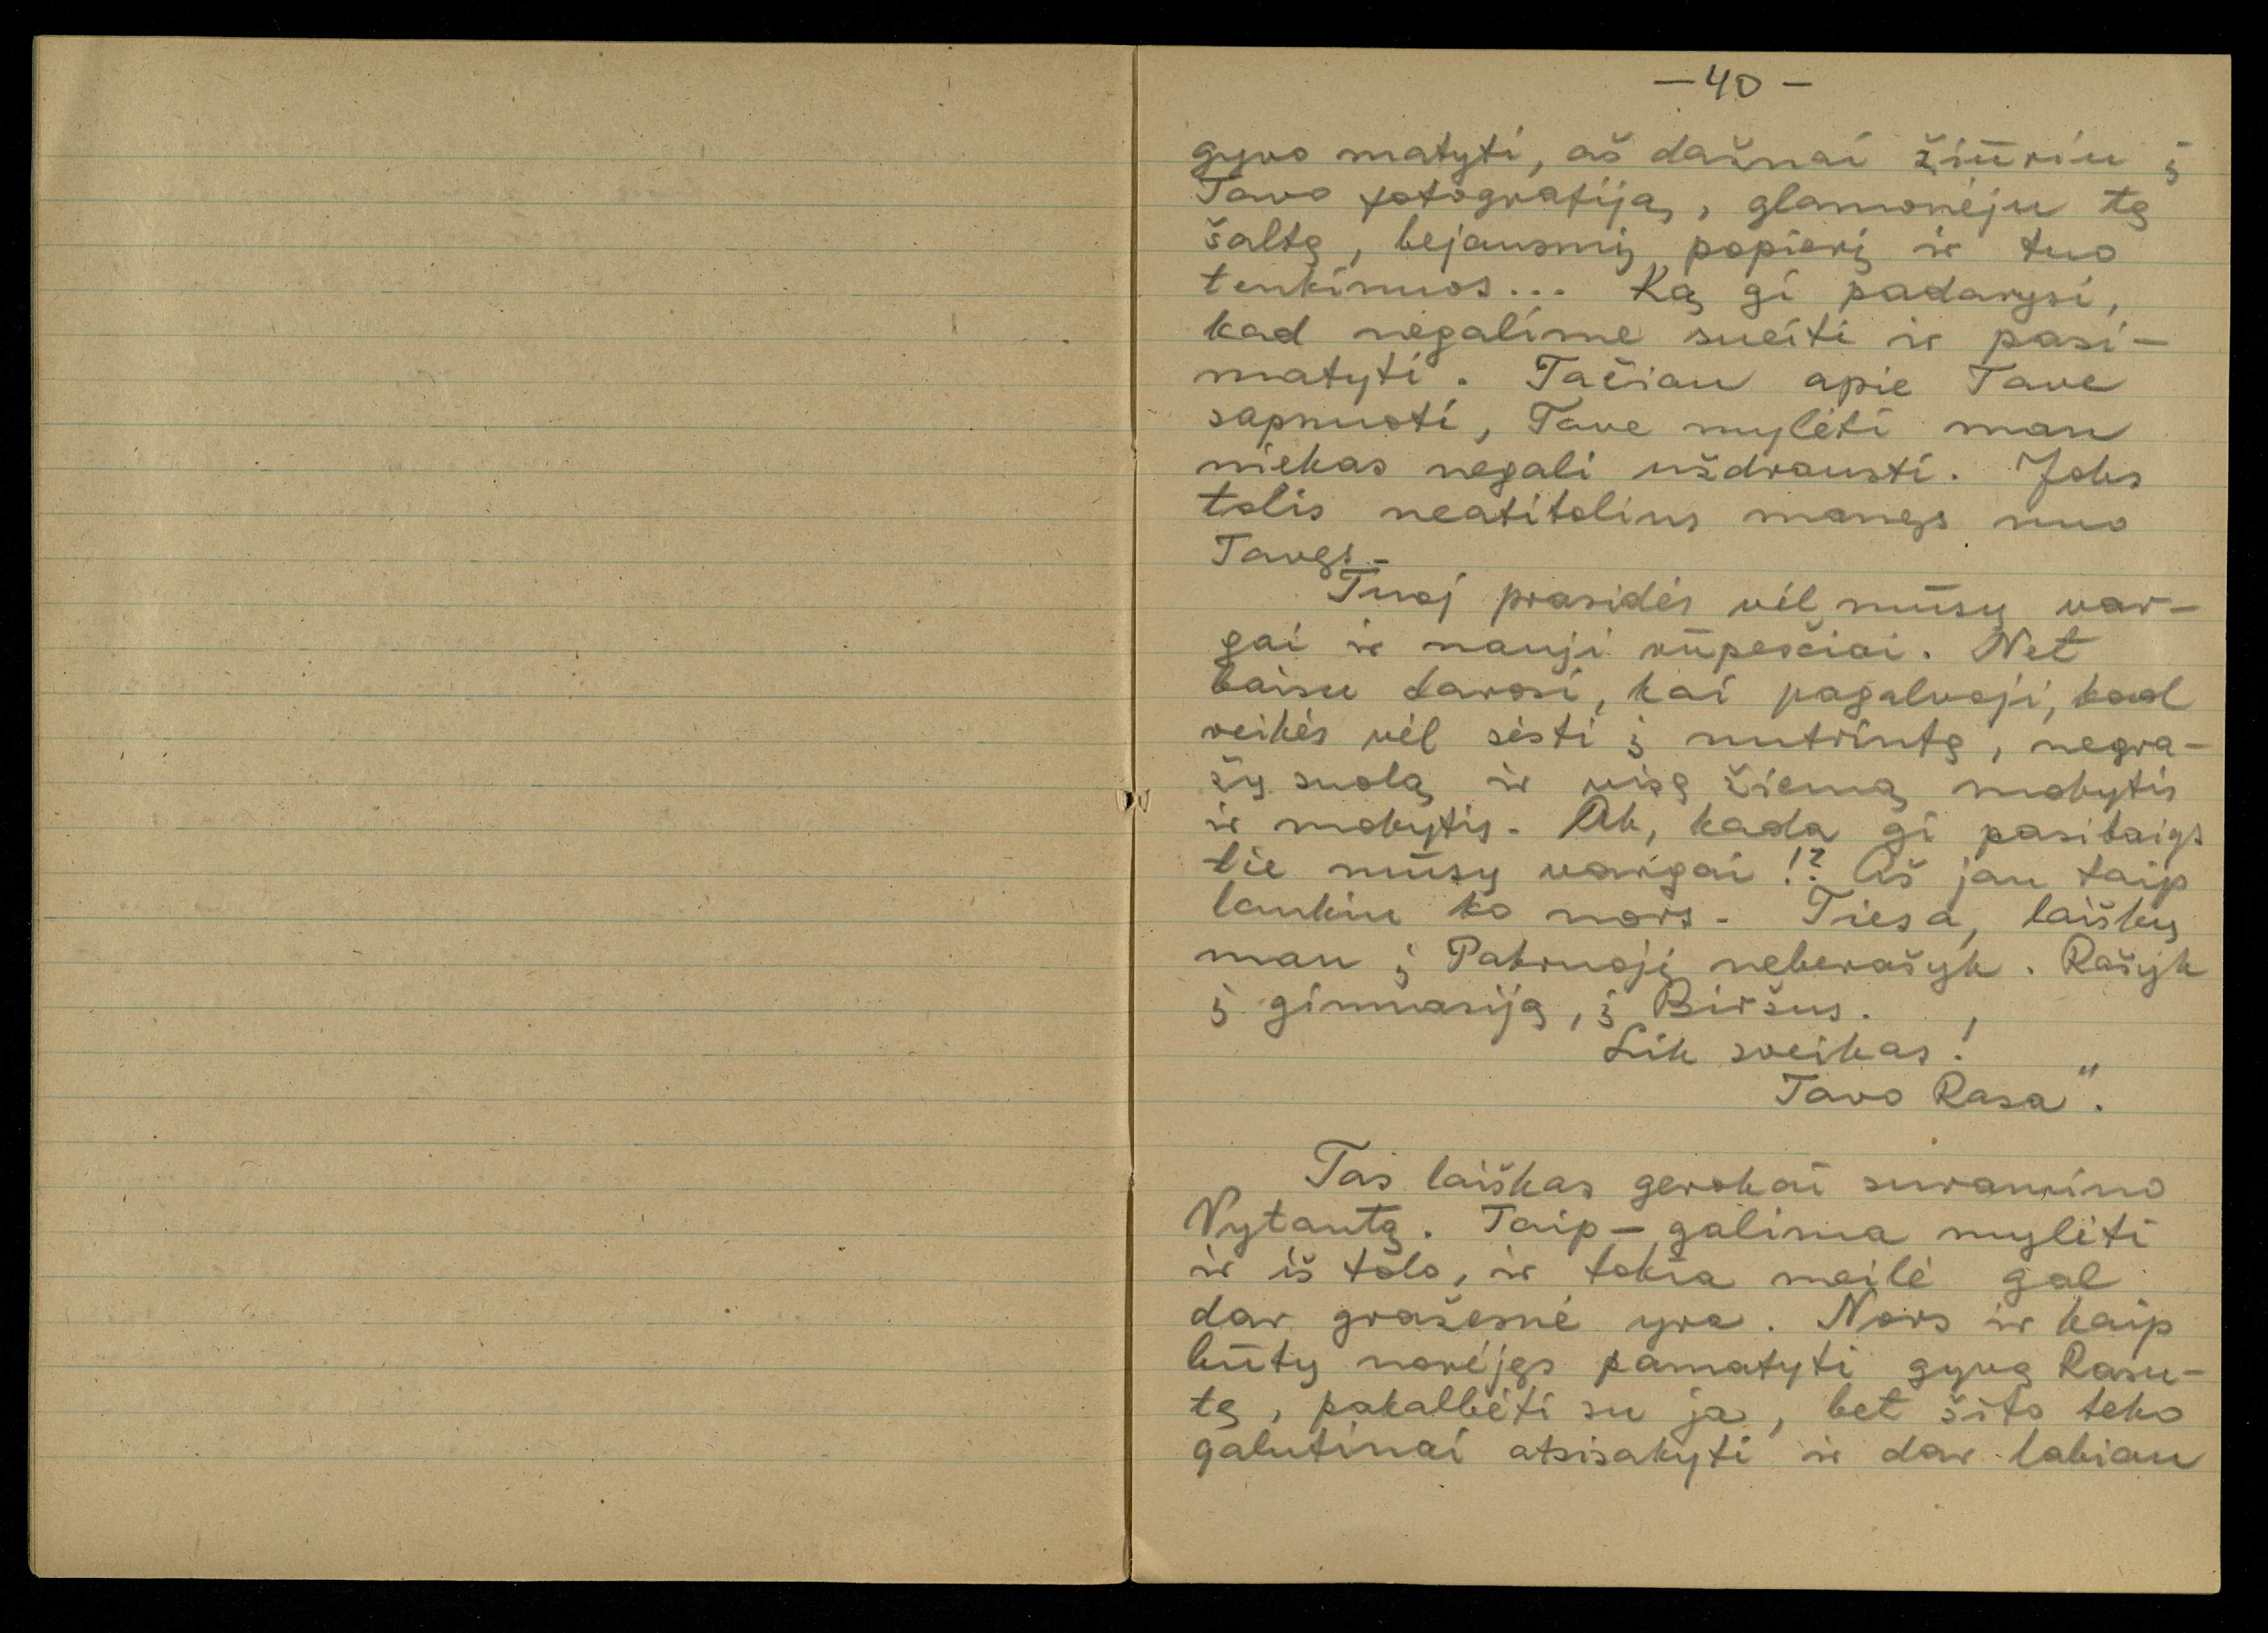 — 40 —
gyvo matyti, aš dažnai žiūriu į
Tavo fotografiją, glamonėju tą
šaltą, bejausmį popierį ir tuo
tenkinuos... Ką gi padarysi,
kad negalime sueiti ir pasi-
matyti. Tačiau apie Tave
sapnuoti, Tave mylėti man
niekas negali uždrausti. Joks
tolis neatitolins manęs nuo
Tavęs.
Tuoj prasidės vėl mūsų var-
gai ir nauji rūpesčiai. Net
baisu darosi, kai pagalvoji, kad
reikės vėl sėsti į nutrintą, negra-
žų suolą ir visą žiemą mokytis
ir mokytis. Ak, kada gi pasibaigs
tie mūsų vargai!? Aš jau taip
laukiu ko nors. Tiesa, laiškų
man į Pakruojį neberašyk. Rašyk
į gimnasiją, į Biržus.
Lik sveikas!
Tavo Rasa".
Tas laiškas gerokai suramino
Vytautą. Taip – galima mylėti
ir iš tolo, ir tokia meilė gal
dar gražesnė yra. Nors ir kaip
būtų norėjęs pamatyti gyvą Rasu-
tę, pakalbėti su ja, bet šito teko
galutinai atsisakyti ir dar labiau